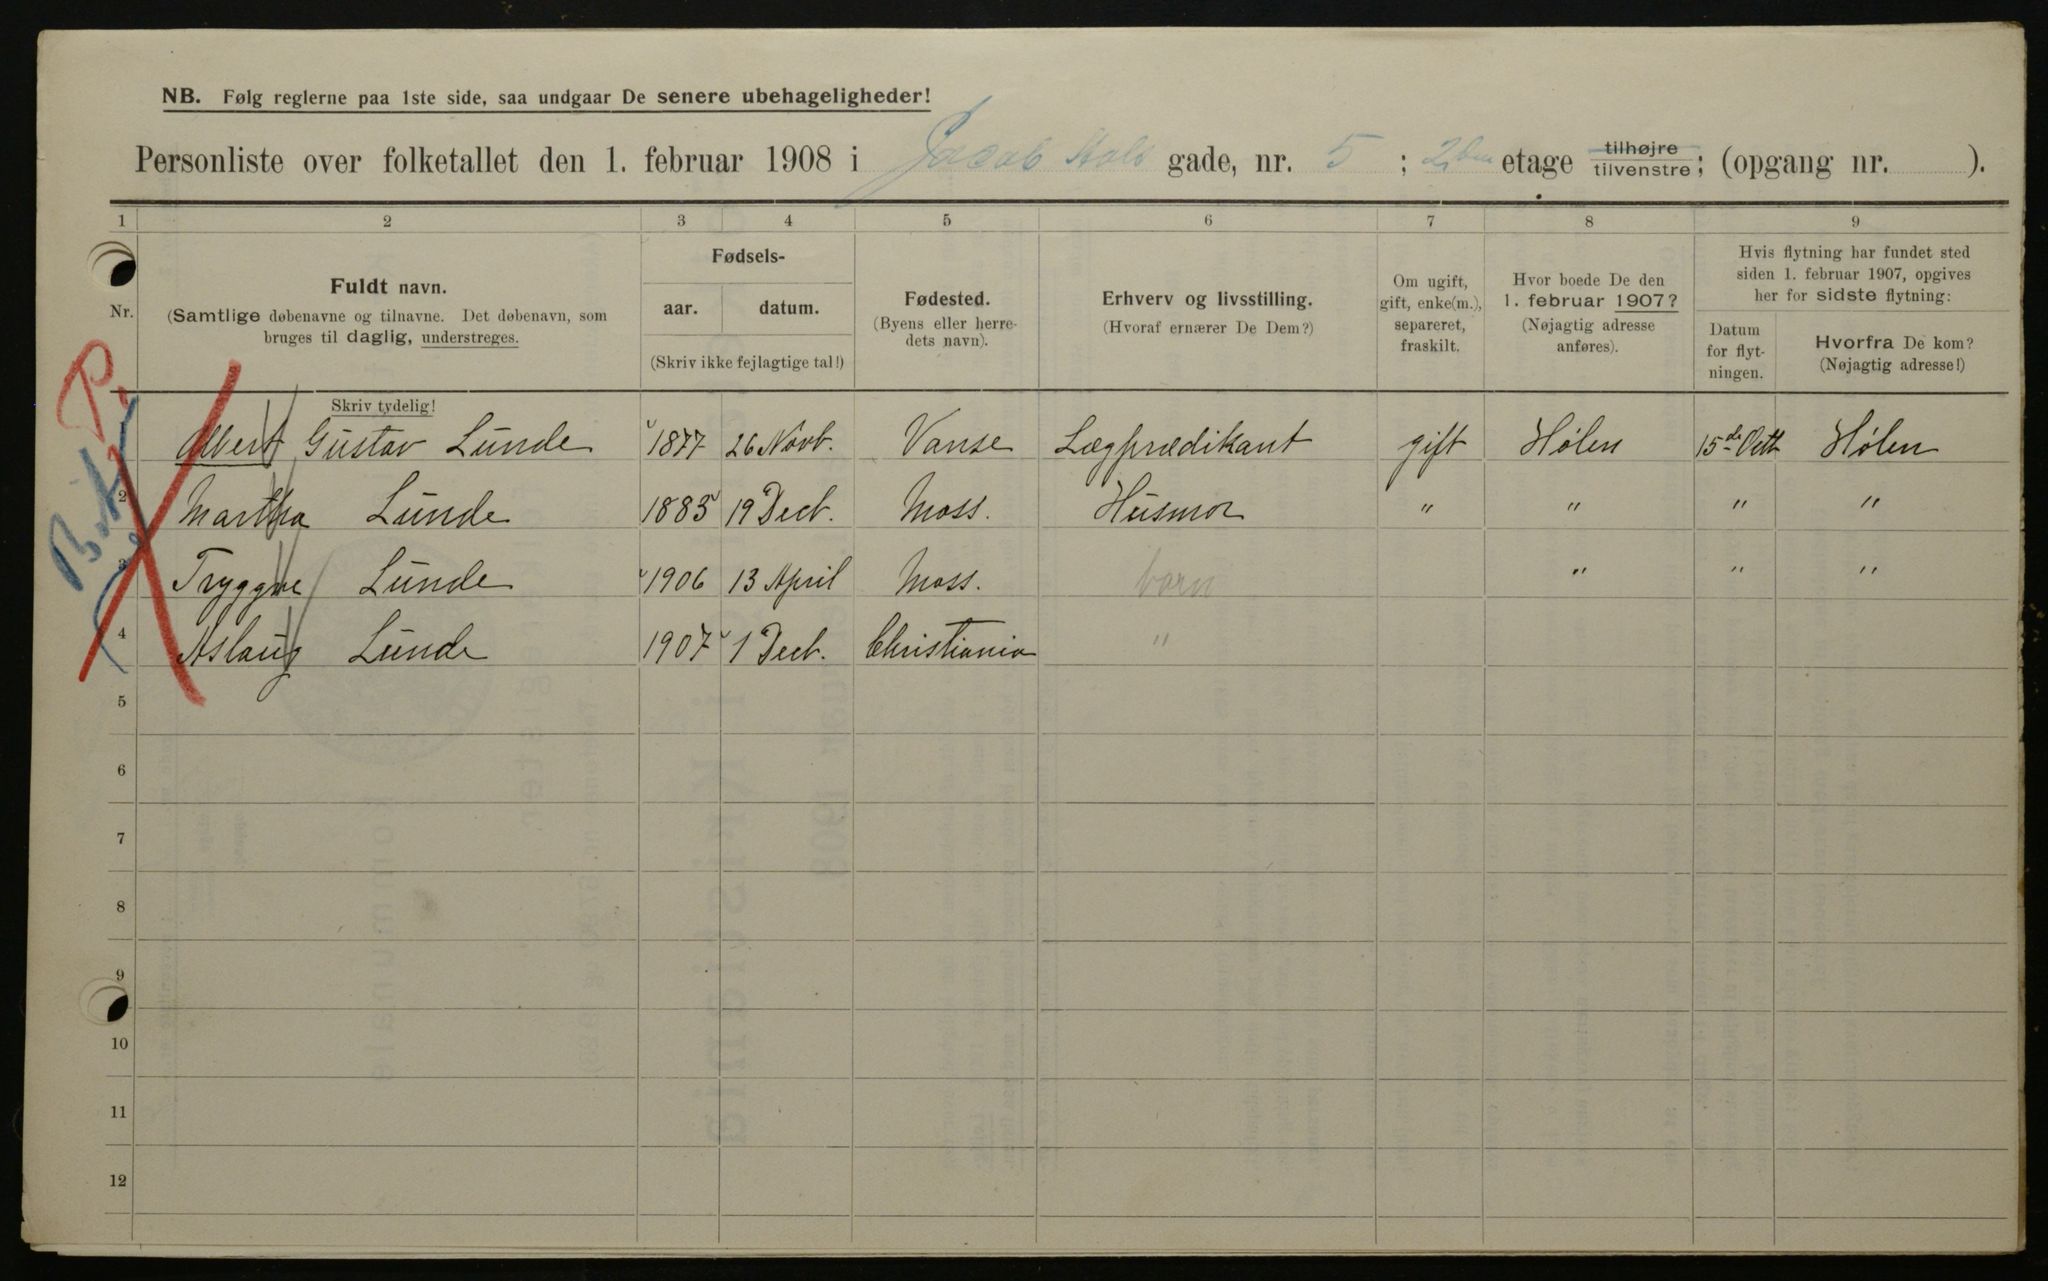 NB. Følg reglerne paa 1ste side, saa undgaar De senere ubehageligheder!
Personliste over folketallet den 1. februar 1908 i Jacob Aals gade, nr. 5 ; 2den etage tilhøjre tilvenstre; (opgang nr. ).
1 2 3 4 5 6 7 8 9
Nr.
Fuldt navn.
(Samtlige døbenavne og tilnavne. Det døbenavn, som
bruges til daglig, understreges.
Skriv tydelig!
Fødsels-
aar. datum.
(Skriv ikke fejlagtige tal!)
Fødested.
(Byens eller herre-
dets navn).
Erhverv og livsstilling.
(Hvoraf ernærer De Dem?)
Om ugift,
gift, enke(m.),
separeret,
fraskilt.
Hvor boede De den
1. februar 1907?
(Nøjagtig adresse
anføres).
Hvis flytning har fundet sted
siden 1. februar 1907, opgives
her for sidste flytning:
Datum
for flyt-
ningen.
Hvorfra De kom?
(Nøjagtig adresse!)
Albert Gustav Lunde 1877 26 Novb. Vanse Lægprædikant gift Hølen 15de Octb Hølen
2 Martha Lunde 1883 19 Decb. Moss. Husmor " " " "
3 Tryggve Lunde 1906 13 April Moss. barn " " "
4 Aslaug Lunde 1907 1 Decb. Christiania "
5
6
7
8
9
10
11
12